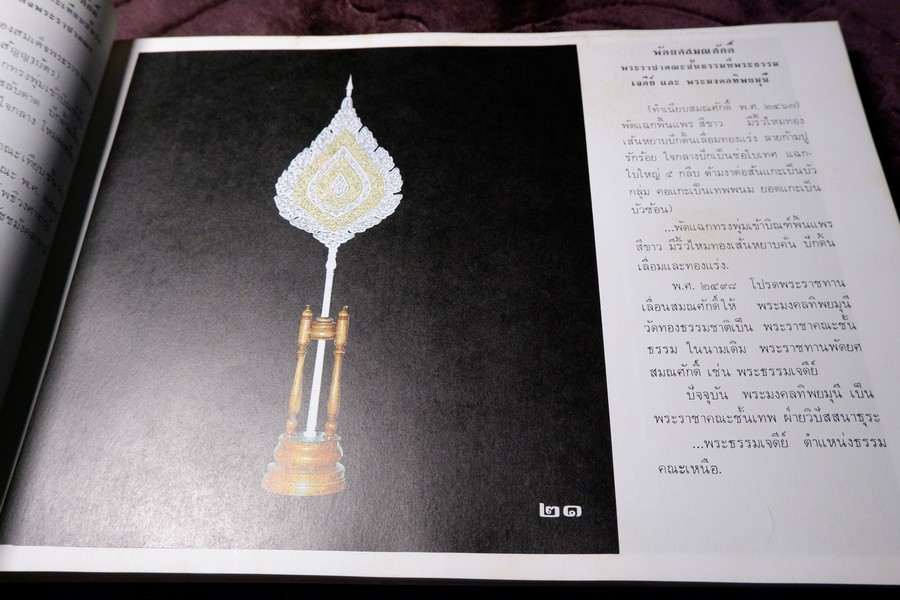 พัดยศสมณศักดิ์
พระราชาคณะชั้นธรรมที่พระธรรม
เจดีย์ และ พระมงคลทิพยมุนี
(ทำเนียบสมณศักดิ์ พ.ศ. ๒๔๖๗)
พัดแฉกพื้นแพร สีขาว มีริ้วไหมทอง
เส้นหยาบปักดิ้นเลื่อมทองแร่ง ลายก้ามปู
รักร้อย ใจกลางปักเป็นช่อใบเทศ แฉก-
ใบใหญ่ ๕ กลีบ ด้ามงาต่อสันแกะเป็นบัว
กลุ่ม คอแกะเป็นเทพพนม ยอดแกะเป็น
บัวซ้อน)
...พัดแฉกทรงพุ่มเข้าบิณฑ์พื้นแพร
สีขาว มีริ้วไหมทองเส้นหยาบคั่น ปักดิ้น
เลื่อมและทองแร่ง.
พ.ศ. ๒๔๙๘ โปรดพระราชทาน
เลื่อนสมณศักดิ์ให้ พระมงคลทิพยมุนี
วัดทองธรรมชาติเป็น พระราชาคณะชั้น
ธรรม ในนามเดิม พระราชทานพัดยศ
สมณศักดิ์ เช่น พระธรรมเจดีย์
ปัจจุบัน พระมงคลทิพยมุนี เป็น
พระราชาคณะชั้นเทพ ฝ่ายวิปัสสนาธุระ
...พระธรรมเจดีย์ ตำแหน่งธรรม
คณะเหนือ.
๒๑